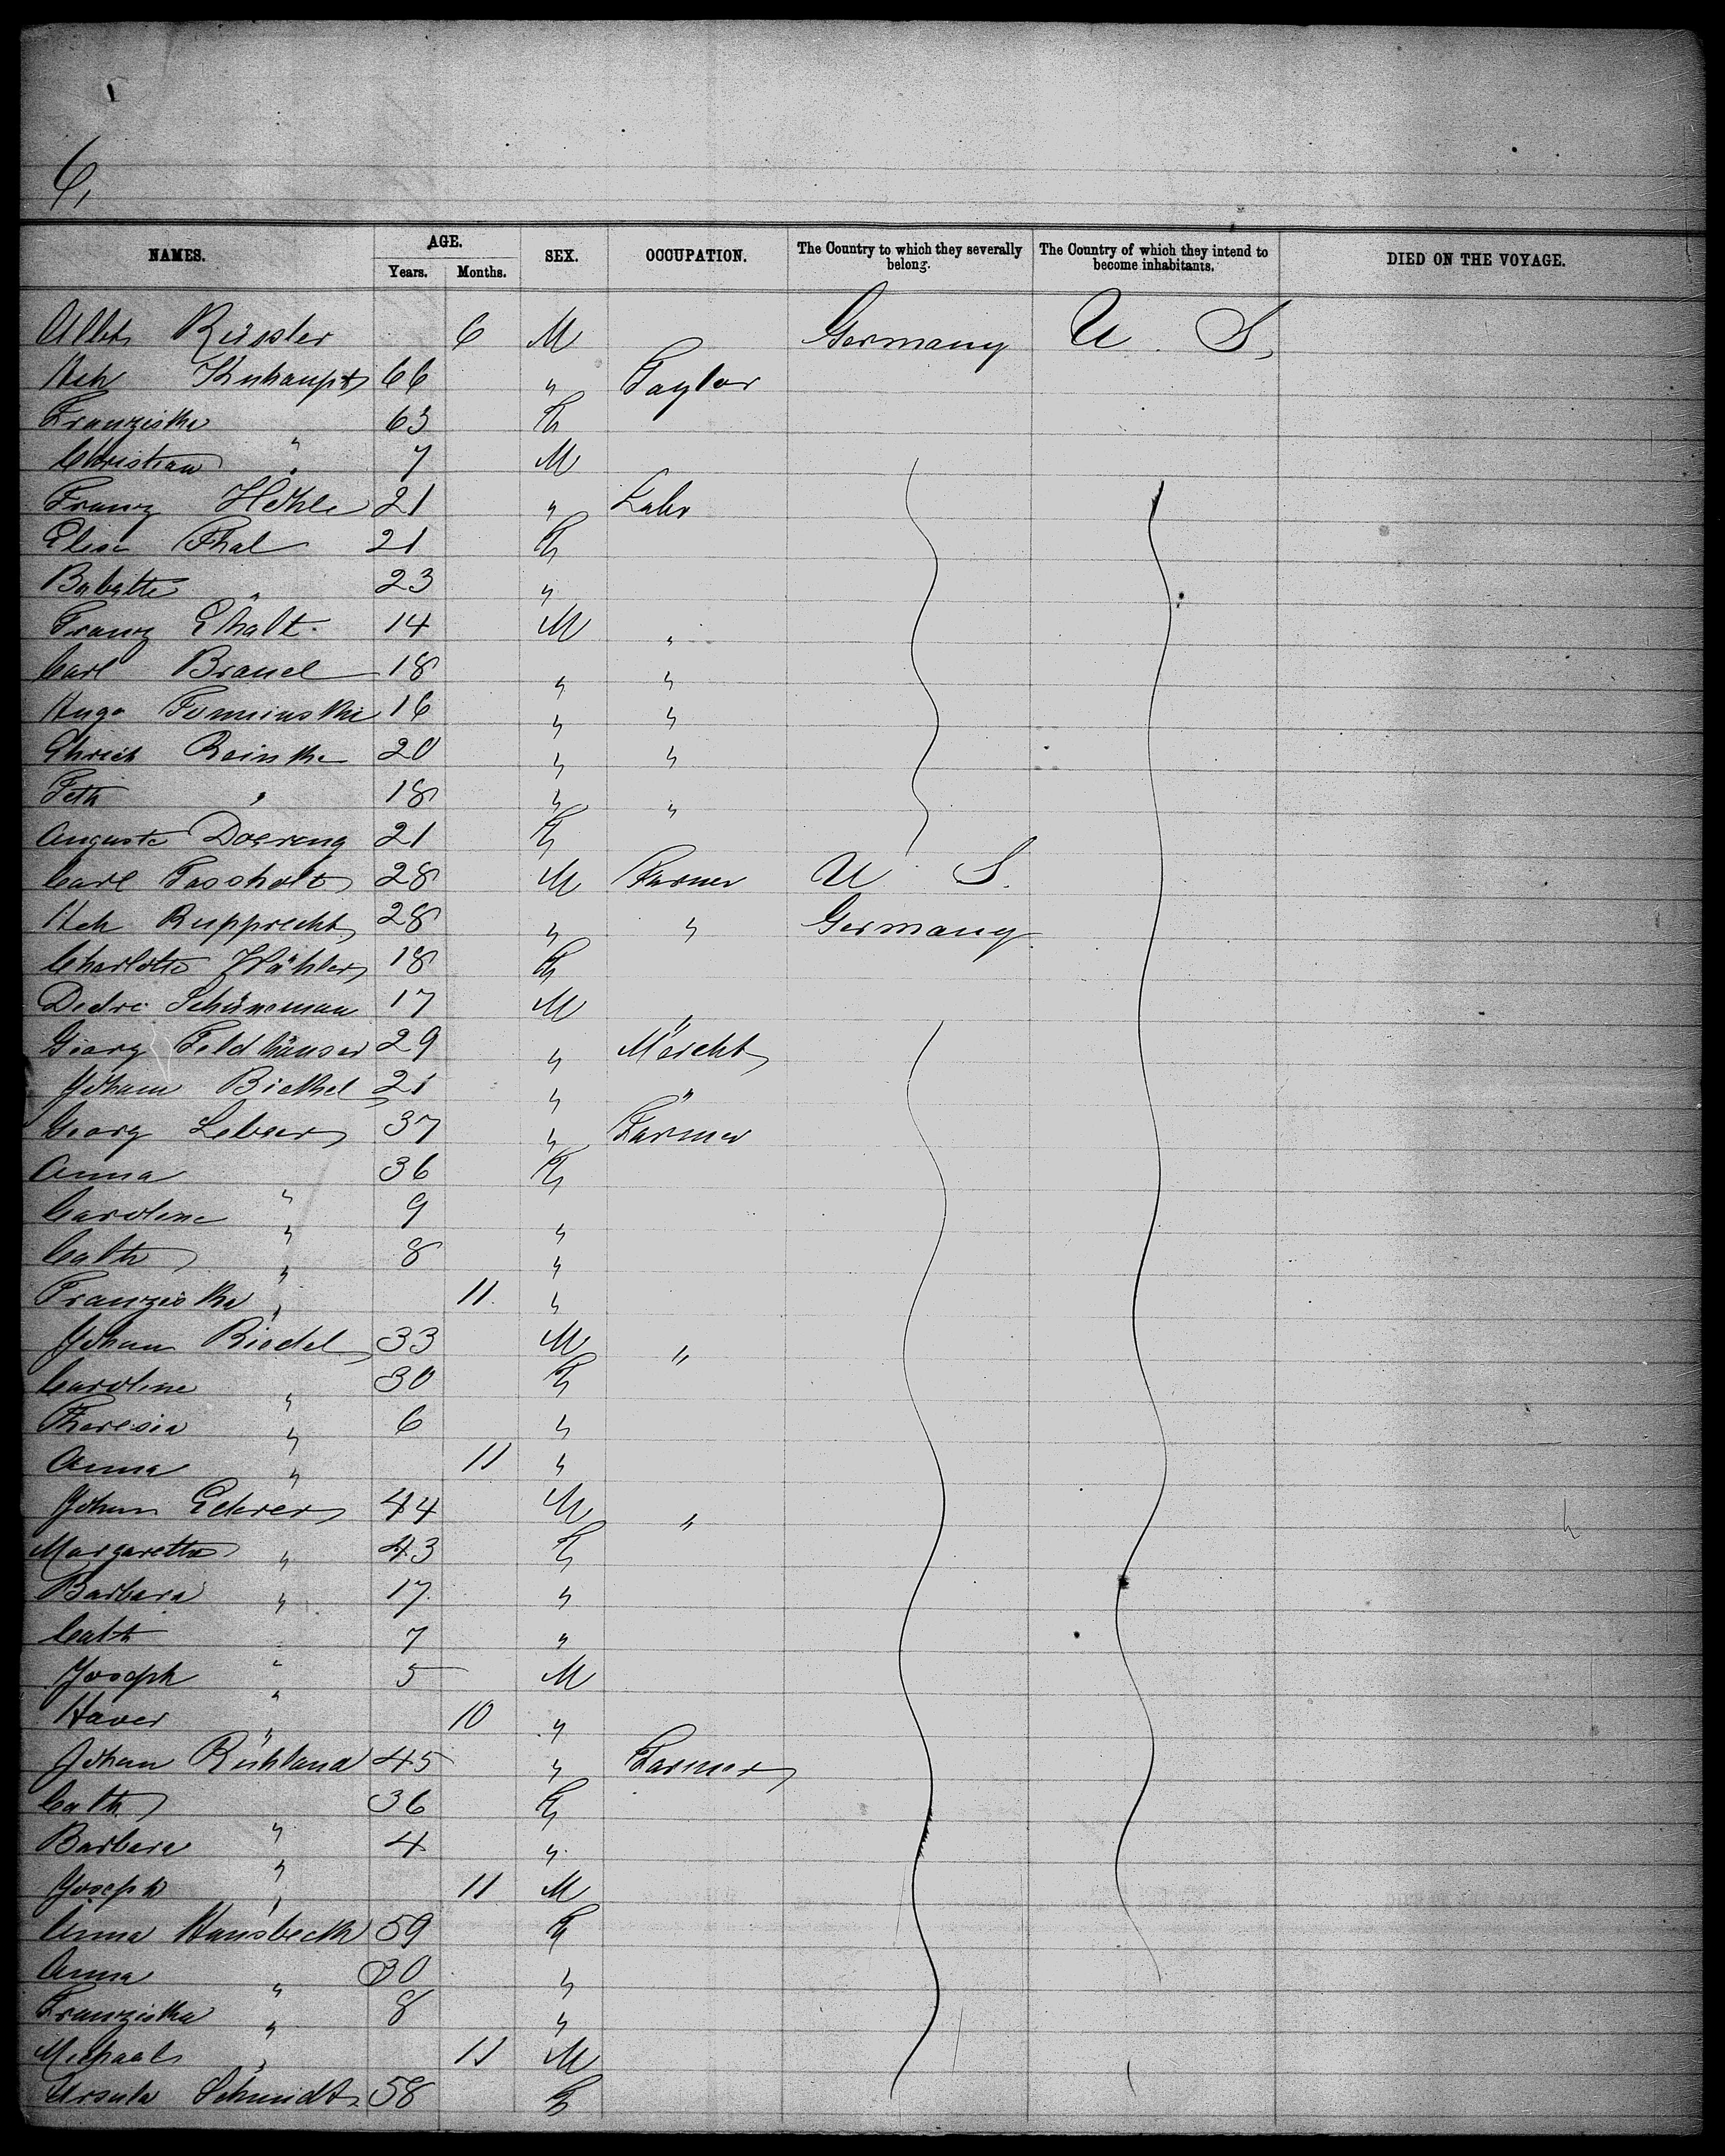 6,
NAMES. AGE. Years. Months. SEX. OCCUPATION. The Country to which they severally belong. The Country of which they intend to become inhabitants. DIED ON THE VOYAGE.
Albt Rüssler 6 M Germany U. S.
Hch Kuhaupt 66 " Taylor
Franziska " 63 F
Christian " 7 M
Franz Hehle 21 " Labr
Elise Thal 21 F
Babette " 23 "
Franz Ehalt 14 M "
Carl Brand 18 " "
Hugo Tominski 16 " "
Ehrich Reinke 20 " "
" 18 " "
Auguste Doering 21 F
Carl Tassholt 28 M Farmer U S.
Hch Rupprecht 28 " " Germany
Charlotte 18 F
Dedre Schüneman 17 M "
Georg Feldhäuser 29 " Mercht
Johann Biethel 21 " "
Georg Lebser 37 " Farmer
Anna " 36 F
Caroline " 9 "
Cath " 8 "
Franziska " 11 "
Johann Riedel 33 M "
Caroline " 30 F
Theresia " 6 "
Anna " 11 "
Johann Ederer 44 M "
Margaretha " 43 F
Barbara " 17 "
Cath " 7 "
Joseph " 5 M
Xaver " 10 "
Johan Rühland 45 " Farmer
Cath " 36 F
Barbara " 4 "
Joseph " 11 M
Anna Hansbeck 59 F
Anna " 30 "
Franziska " 8 "
Michael " 11 M
Ursula Schmidt 58 F